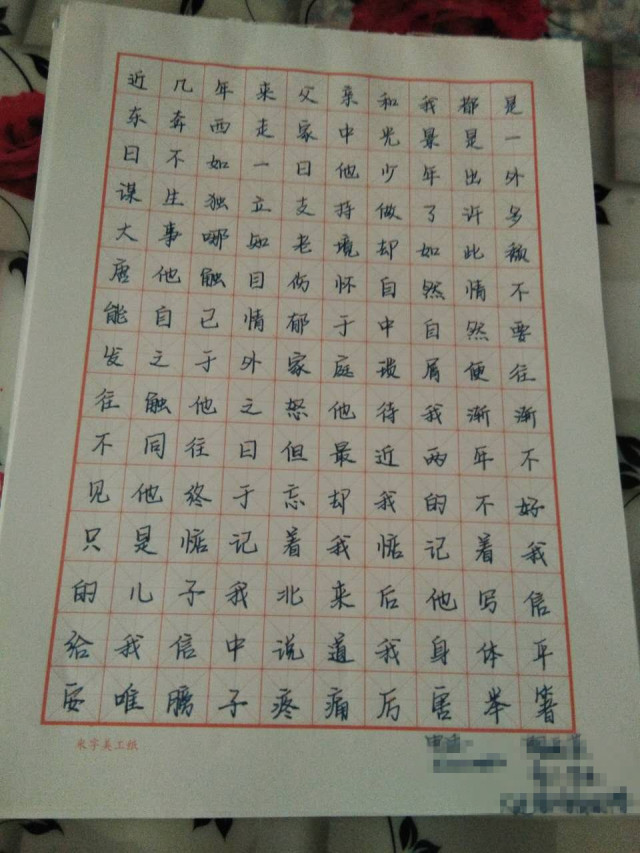 近几年来父亲和我都是
东奔西走家中光景是一
日不如一日他少年出外
谋生独立支持做了许多
大事哪知老境却如此颓
唐他触目伤怀自然情不
能自己情郁于中自然要
发之于外家庭琐屑便往
往触他之怒他待我渐渐
不同往日但最近两年不
见他终于忘却我的不好
只是惦记着我惦记着我
的儿子我北来后他写信
给我信中说道我身体平
安唯膀子疼痛厉害举箸
米字美工纸